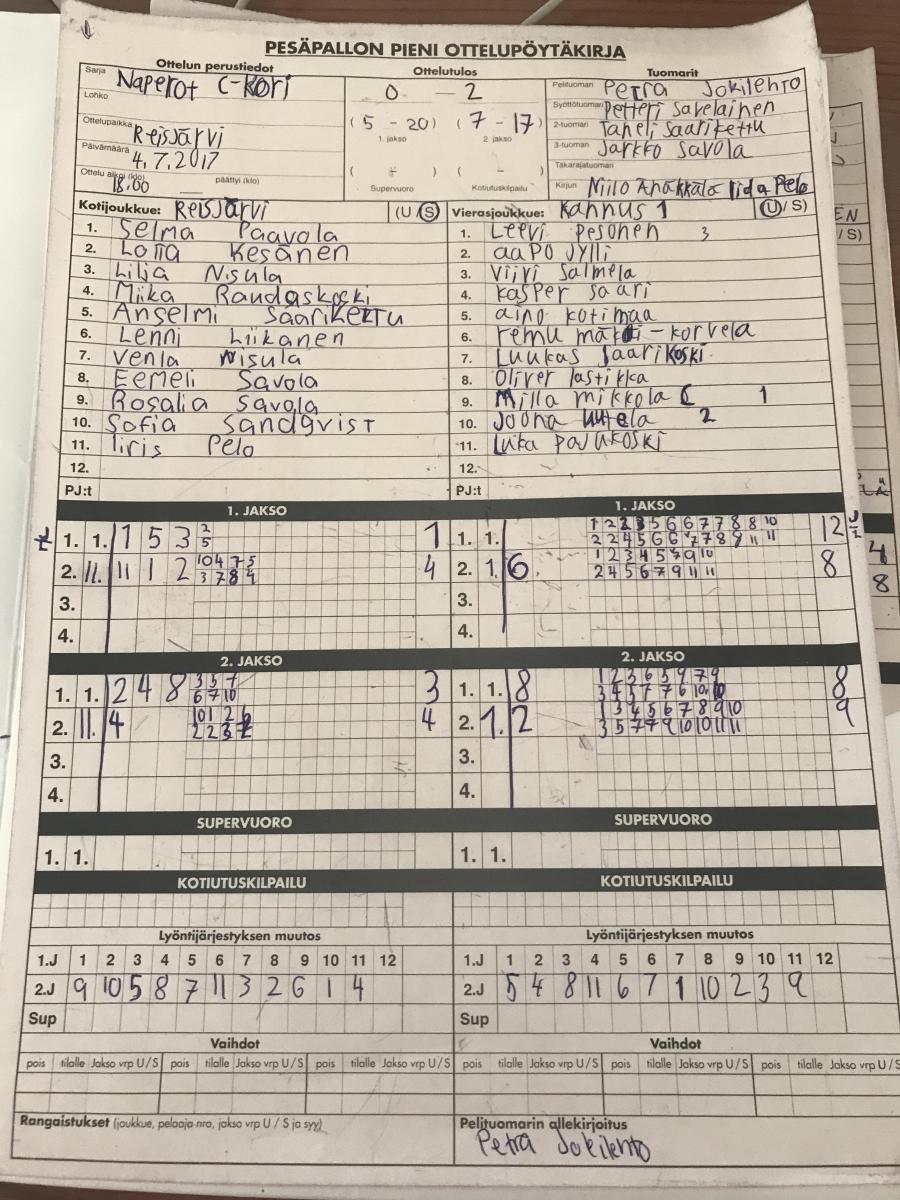 PESÄPALLON PIENI OTTELUPÖYTÄKIRJA
Ottelun perustiedot
Sarja Naperot C-Kori
Lohko
Ottelupaikka Reisjärvi
Päivämäärä 4.7.2017
Ottelu alkoi (klo) 18.00 päättyi (klo)
Ottelutulos
0 - 2
(5 - 20) (7 - 17)
1. jakso 2. jakso
( - ) ( - )
Supervuoro Kotiutuskilpailu
Tuomarit
Pelituomari Petra Jokilehto
Syöttötuomari Petteri Savelainen
2-tuomari Taneli Saarikettu
3-tuomari Jarkko Savola
Takarajatuomari
Kirjuri Niilo Iida Pelo
Kotijoukkue: Reisjärvi (U/S)
1. Selma Paavola
2. Lotta Kesänen
3. Lilja Nisula
4. Miika Raudaskoski
5. Anselmi Saarikettu
6. Lenni Liikanen
7. Venla Nisula
8. Eemeli Savola
9. Rosalia Savola
10. Sofia Sandqvist
11. Iiris Pelo
12.
PJ:t
Vierasjoukkue: Kannus 1 (U/S)
1. Leevi Pesonen 3
2. aaPO Jylli
3. Viivi Salmela
4. kasper saari
5. aino kotimaa
6. remu - korvela
7. Luukas Saarikoski
8. Oliver lastikka
9. Milla mikkola C 1
10. Joona 2
11. Luka
12.
PJ:t
1. JAKSO
1. 1. 1 5 3 2 1
5
2. 11. 11 1 2 10 4 7 5 4
3 7 8 9
3.
4.
1. JAKSO
1. 1. 1 2 2 3 5 6 6 7 7 8 8 10 12
2 2 4 5 6 6 7 7 8 9 11 11
2. 1. 6 1 2 3 4 5 7 9 10 8
2 4 5 6 7 9 11 11
3.
4.
2. JAKSO
1. 1. 2 4 8 3 5 7 3
6 7 10
2. 11. 4 10 1 2 4
2 2 3
3.
4.
2. JAKSO
1. 1. 8 1 2 3 6 5 9 7 9 8
3 4 5 7 7 6 10 10
2. 1. 2 1 3 4 5 6 7 8 9 10 9
3 5 7 7 9 10 10 11 11
3.
4.
SUPERVUORO
1. 1.
SUPERVUORO
1. 1.
KOTIUTUSKILPAILU
KOTIUTUSKILPAILU
Lyöntijärjestyksen muutos
1.J 1 2 3 4 5 6 7 8 9 10 11 12
2.J 9 10 5 8 7 11 3 2 6 1 4
Sup
Lyöntijärjestyksen muutos
1.J 1 2 3 4 5 6 7 8 9 10 11 12
2.J 5 4 8 11 6 7 1 10 2 3 9
Sup
Vaihdot
pois tilalle Jakso vrp U/S pois tilalle Jakso vrp U/S pois tilalle Jakso vrp U/S
Vaihdot
pois tilalle Jakso vrp U/S pois tilalle Jakso vrp U/S pois tilalle Jakso vrp U/S
Rangaistukset (joukkue, pelaaja nro, jakso vrp U / S ja syy)
Pelituomarin allekirjoitus
Petra Jokilehto
EN
/ S)
4
8